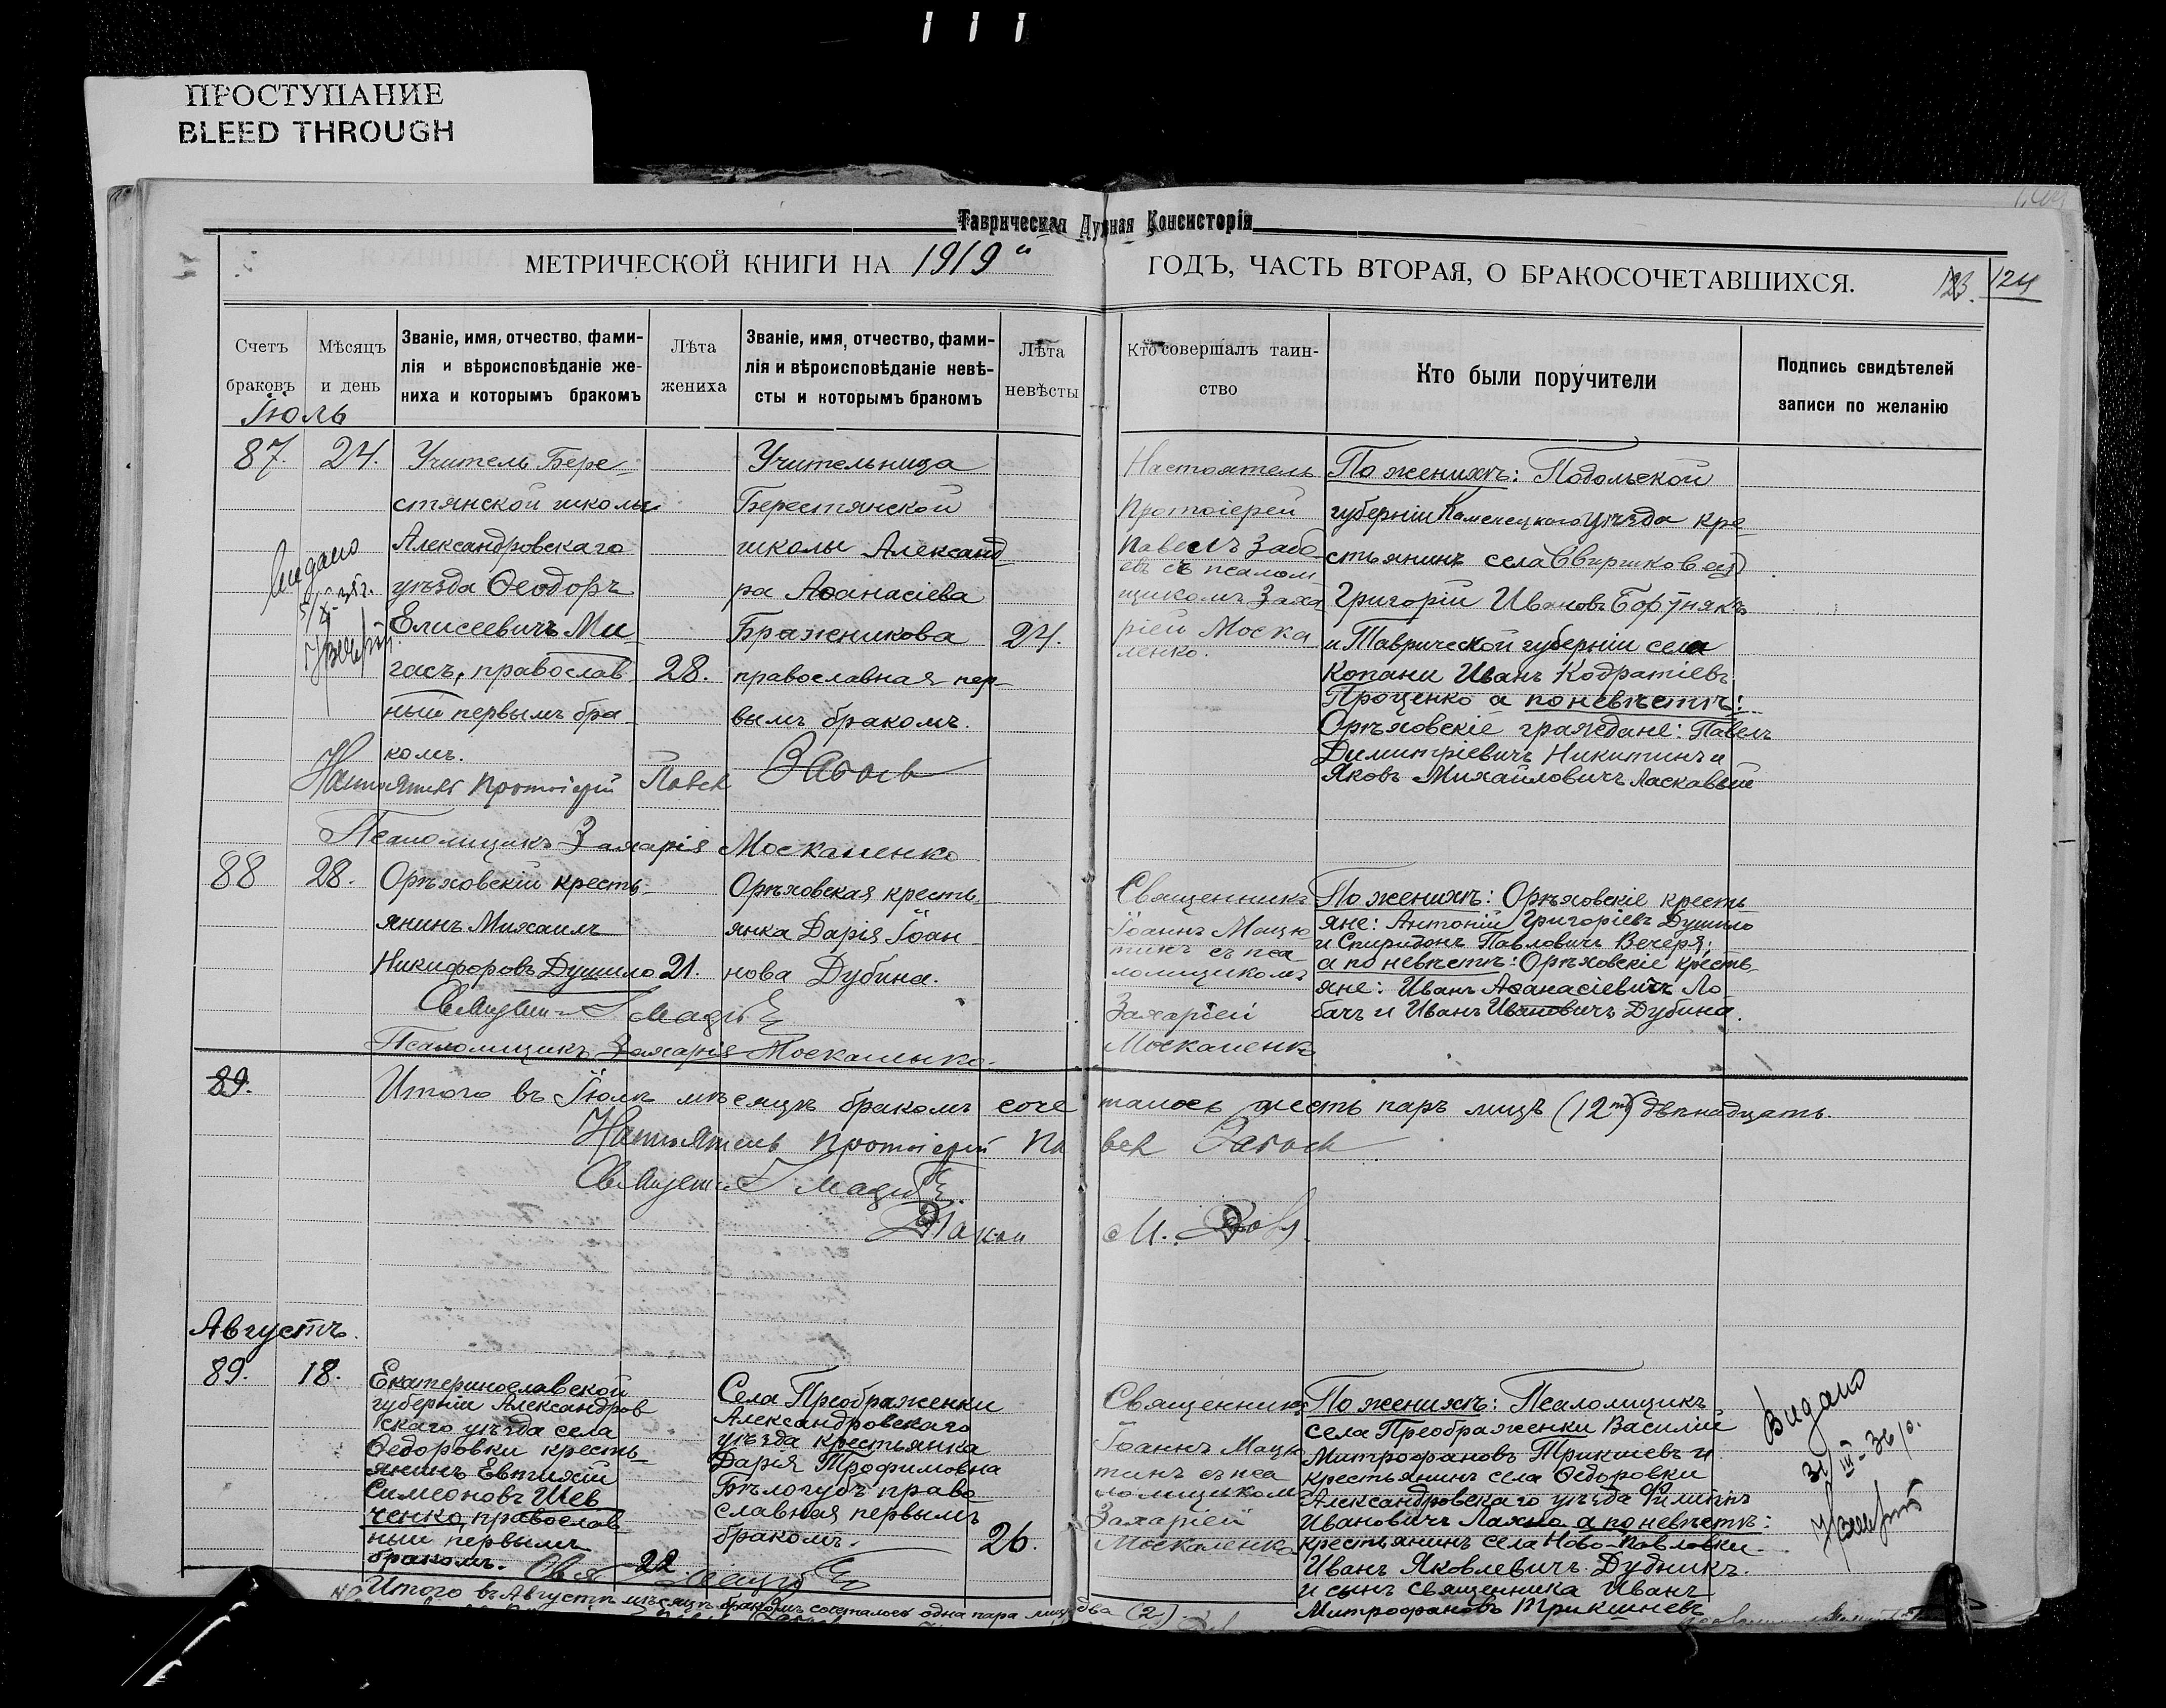 ПРОСТУПАНИЕ
BLEED THROUGH
Таврическая Духная Консисторія
МЕТРИЧЕСКОЙ КНИГИ НА 1919й ГОДЪ, ЧАСТЬ ВТОРАЯ, О БРАКОСОЧЕТАВШИХСЯ.
123. 124
Счетъ
браковъ
Мѣсяцъ
и день
Званіе, имя, отчество, фами-
лія и вѣроисповѣданіе же-
ниха и которымъ бракомъ
Лѣта
жениха
Званіе, имя, отчество, фами-
лія и вѣроисповѣданіе невѣ-
сты и которымъ бракомъ
Лѣта
невѣсты
Кто совершалъ таин-
ство
Кто были поручители
Подпись свидѣтелей
записи по желанію
Іюль
87. 24.
Учитель Бере
стянской школы
Александровскаго
уѣзда Ѳеодоръ
Елисеевичъ Ми
гасъ, православ
ный первымъ бра
комъ.
28.
Учительница
Берестянской
школы Александ
ра Аѳанасіева
Бражникова
православная пер-
вымъ бракомъ.
24.
Настоятель
Протоіерей
Павелъ Забо
евъ съ псалом
щикомъ Заха
ріей Моска
ленко.
По женихѣ: Подольской
губерніи Каменецкаго уѣзда кре
стьянинъ села Свиршковец
Григорій Ивановъ Бортнякъ
и Таврической губерніи села
Копани Иванъ Кодратіевъ
Проценко а по невѣстѣ:
Орѣховскіе граждане: Павелъ
Димитріевичъ Никитинъ и
Яковъ Михайловичъ Ласкавый
Видано
Настоятель Протоіерей Павел
Псаломщикъ Захарія Москаленко
88 28.
Орѣховскій кресть-
янинъ Михаилъ
Никифоровъ Душило
21.
Орѣховская кресть
янка Дарія Іоан
нова Дубина.
Священникъ
Іоаннъ Мацю
тинъ съ пса
ломщикомъ
Захаріей
Москаленко
По женихѣ: Орѣховскіе кресть
яне: Антоній Григоріевъ Душило
и Спиридонъ Павловичъ Вечеря;
а по невѣстѣ: Орѣховскіе кресть-
яне: Иванъ Аѳанасіевичъ Ло
бачъ и Иванъ Ивановичъ Дубина.
Псаломщикъ Захарія Москаленко.
89.
Итого въ Іюлѣ мѣсяцѣ бракомъ соче талось шесть паръ лицъ (12ть) двѣнадцать
Настоятель Протоіерей Павел
Августъ.
89. 18.
Екатеринославской
губерніи Александров
скаго уѣзда села
Ѳедоровки кресть-
янинъ Евтихій
Симеоновъ Шев
ченко, православ
ный первымъ
бракомъ.
22
Села Преображенки
Александровскаго
уѣзда крестьянка
Дарія Трофимовна
Бѣлогубъ право
славная первымъ
бракомъ.
26.
Священникъ
Іоаннъ Мацю
тинъ съ пса
ломщикомъ
Захаріей
Москаленко
По женихѣ: Псаломщикъ
села Преображенки Василій
Митрофановъ Трикишевъ и
крестьянинъ села Ѳедоровки
Александровскаго уѣзда Филиппъ
Ивановичъ Лахно а по невѣстѣ:
крестьянинъ села Ново-Павловки
Иванъ Яковлевичъ Дудникъ.
и сынъ священника Иванъ
Митрофановъ
Видано
Итого въ Августѣ мѣсяцѣ бракомъ сочеталось одна пара лицъ два (2).